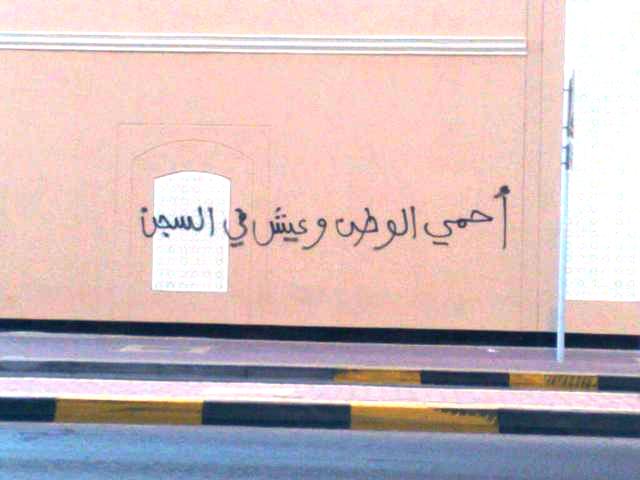 أحمي الوطن وعيش في السجن